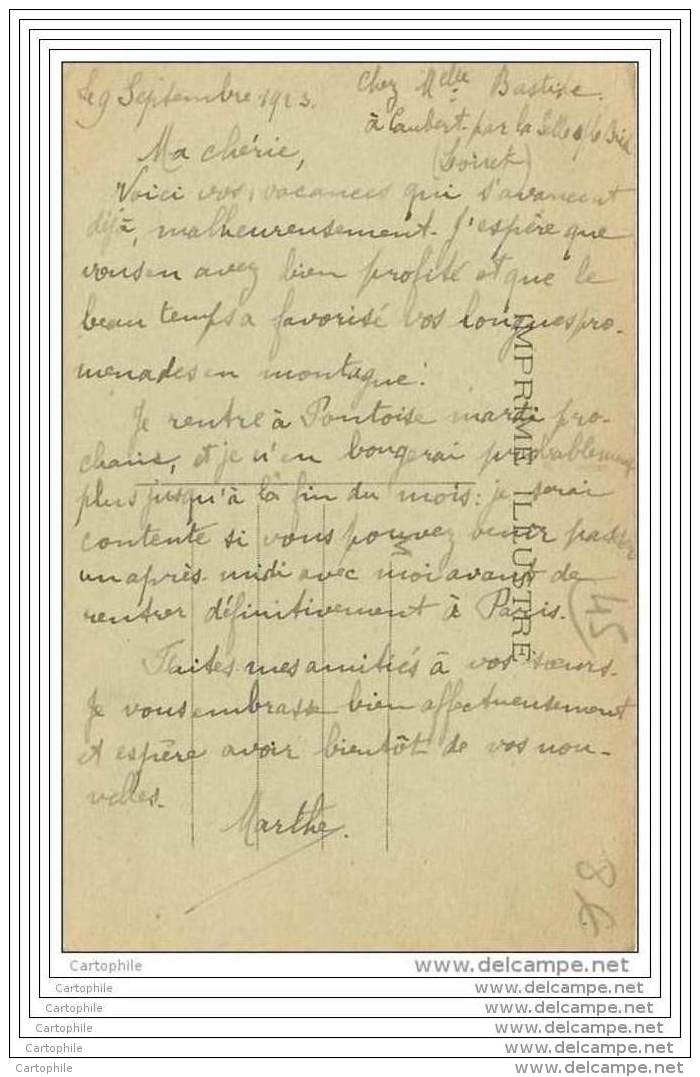 Le 9 Septembre 1923.
Chez Melle Bastide.
à Laubert par la Selle s/ le Bied
(Loiret)
Ma chérie,
Voici vos vacances qui s'avancent
déjà, malheureusement. J'espère que
vous en avez bien profité et que le
beau temps a favorisé vos longues pro-
menades en montagne!
Je rentre à Pontoise mardi pro-
chain, et je n'en bougerai probablement
plus jusqu'à la fin du mois: je serai
contente si vous pouvez venir passer
un après-midi avec moi avant de
rentrer définitivement à Paris.
Faites mes amitiés à vos sœurs.
Je vous embrasse bien affectueusement
et espère avoir bientôt de vos nou-
velles.
Marthe.
IMPRIMÉ ILLUSTRÉ
45
8€
Cartophile www.delcampe.net
Cartophile www.delcampe.net
Cartophile www.delcampe.net
Cartophile www.delcampe.net
Cartophile www.delcampe.net
Cartophile www.delcampe.net